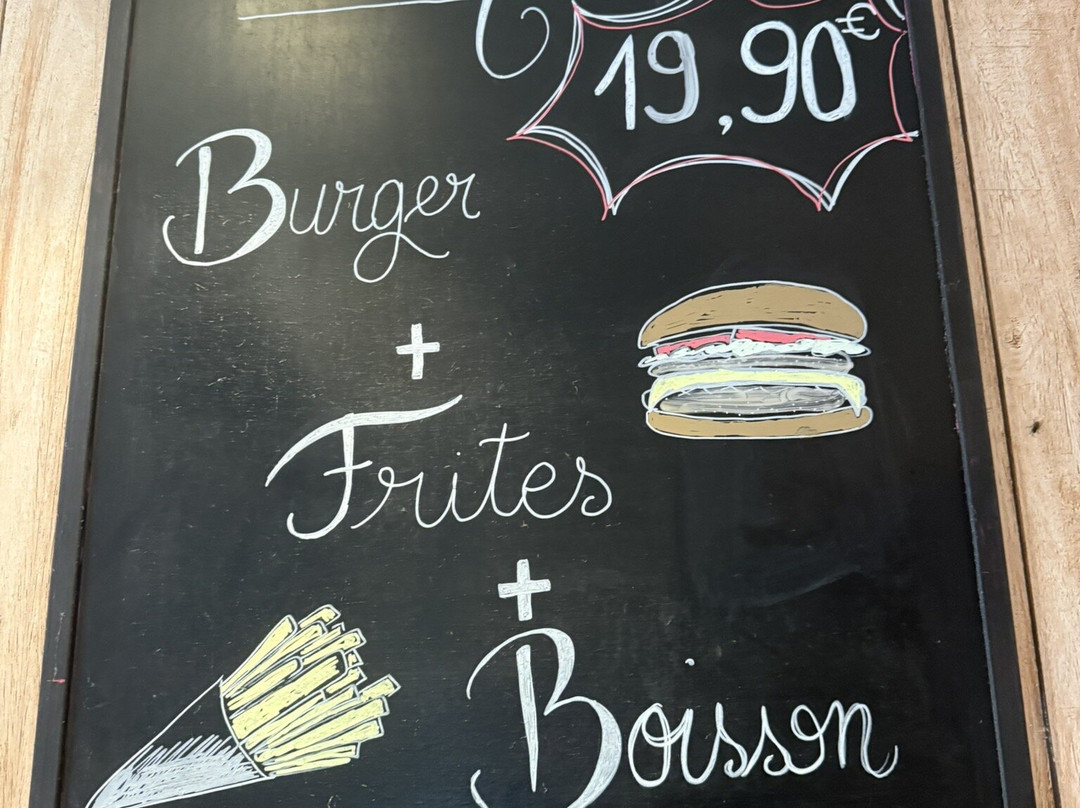 19,90€
Burger
+
Frites
+
Boisson